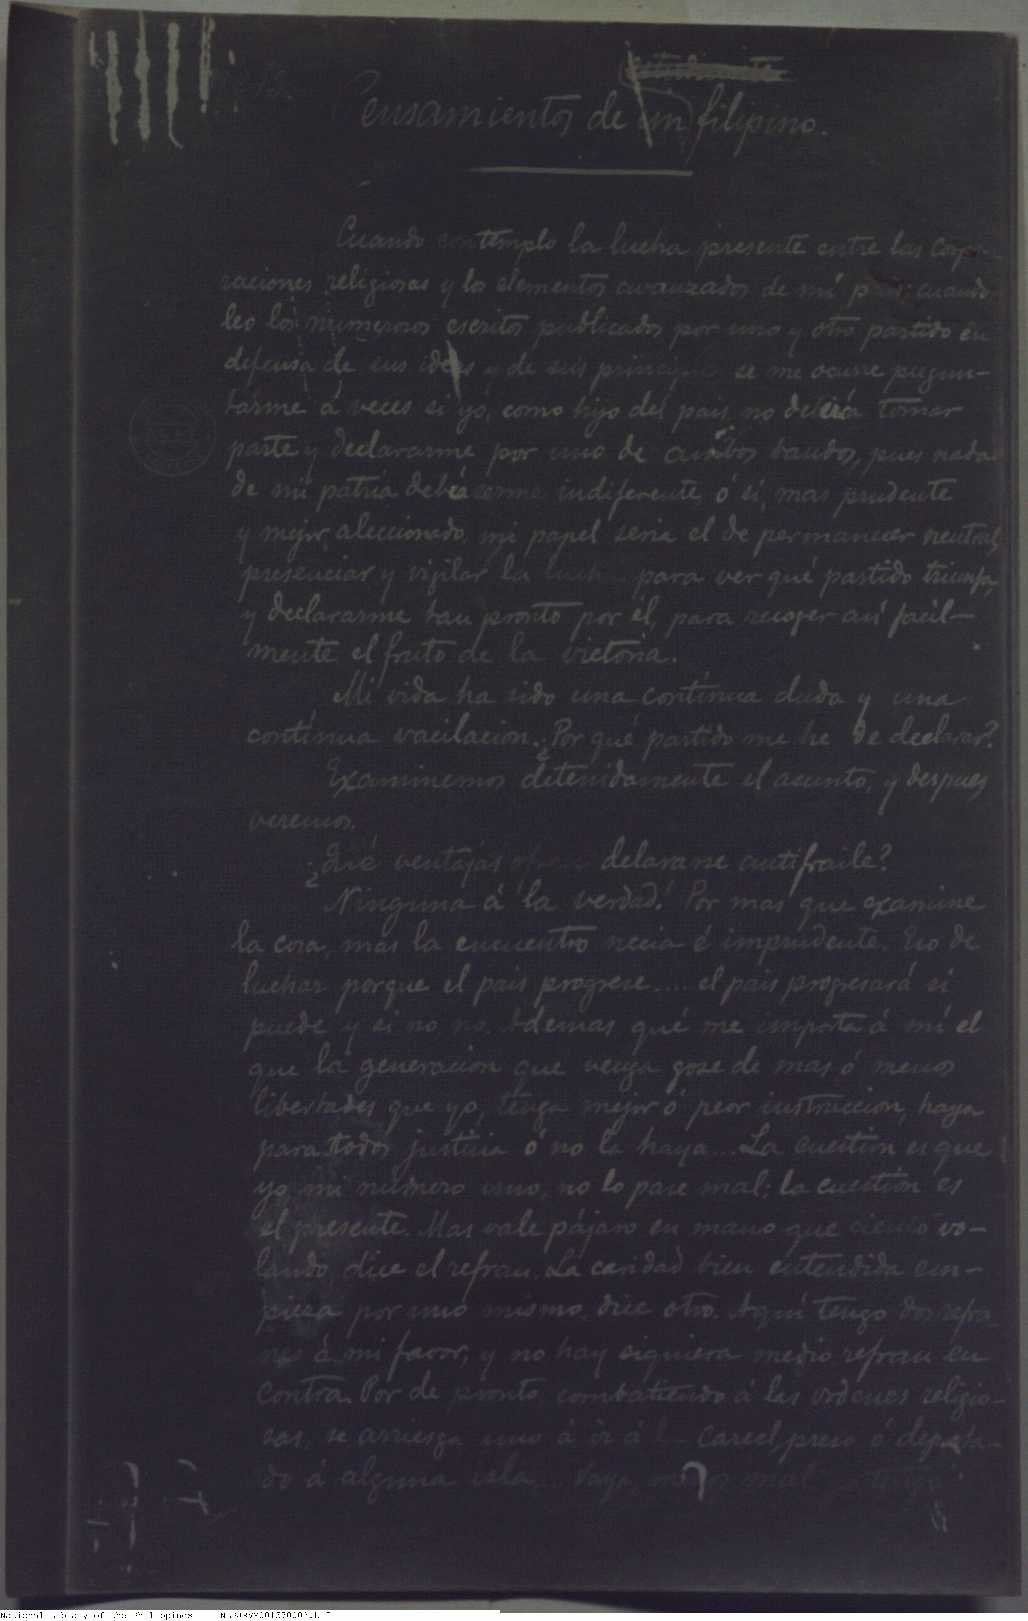 Pensamientos de un filipino.
Cuando contemplo la lucha presente entre las Corpo-
raciones religiosas y los elementos avanzados de mi pais; cuando
leo los numerosos escritos publicados por uno y otro partido en
defensa de sus ideas y de sus principios se me ocurre pregun-
tarme á veces si yó, como hijo del pais, no deberia tomar
parte y declararme por uno de ambos bandos, pues nada
de mi patria debiaserme indiferente, ó si, mas prudente
y mejor aleccionado, mi papel seria el de permanecer neutral,
presenciar y vigilar la lucha para ver qué partido triunfa,
y declararme tan pronto por él, para recoger asi facil-
mente el fruto de la victoria.
Mi vida ha sido una contínua duda y una
contínua vacilacion. ¿Por qué partido me he de declarar?
Examinemos detenidamente el asunto, y despues
veremos.
¿Qué ventajas delararse antifraile?
Ninguna á la verdad! Por mas que examine
la cosa, mas la encuentro necia é imprudente. Eso de
luchar porque el pais progrese.... el pais progresará si
puede y si no, no. Ademas, qué me importa á mí el
que la generacion que venga goze de mas ó menos
libertades que yo, tenga mejor ó peor instruccion, haya
para todos justicia ó no la haya... La cuestion es que
yo, mi número uno, no lo pase mal; la cuestion es
el presente. Mas vale pájaro en mano que ciento vo-
lando, dice el refran. La caridad bien entendida em-
pieza por uno mismo, dice otro. Aquí tengo dos refra-
nes á mi favor, y no hay siquiera medio refran en
contra. Por de pronto, combatiendo á las ordenes religio-
sas, se arriesga uno á ir á la carcel, preso ó deporta-
do á alguna isla... Vaya, menos mal
National Library of the Philippines